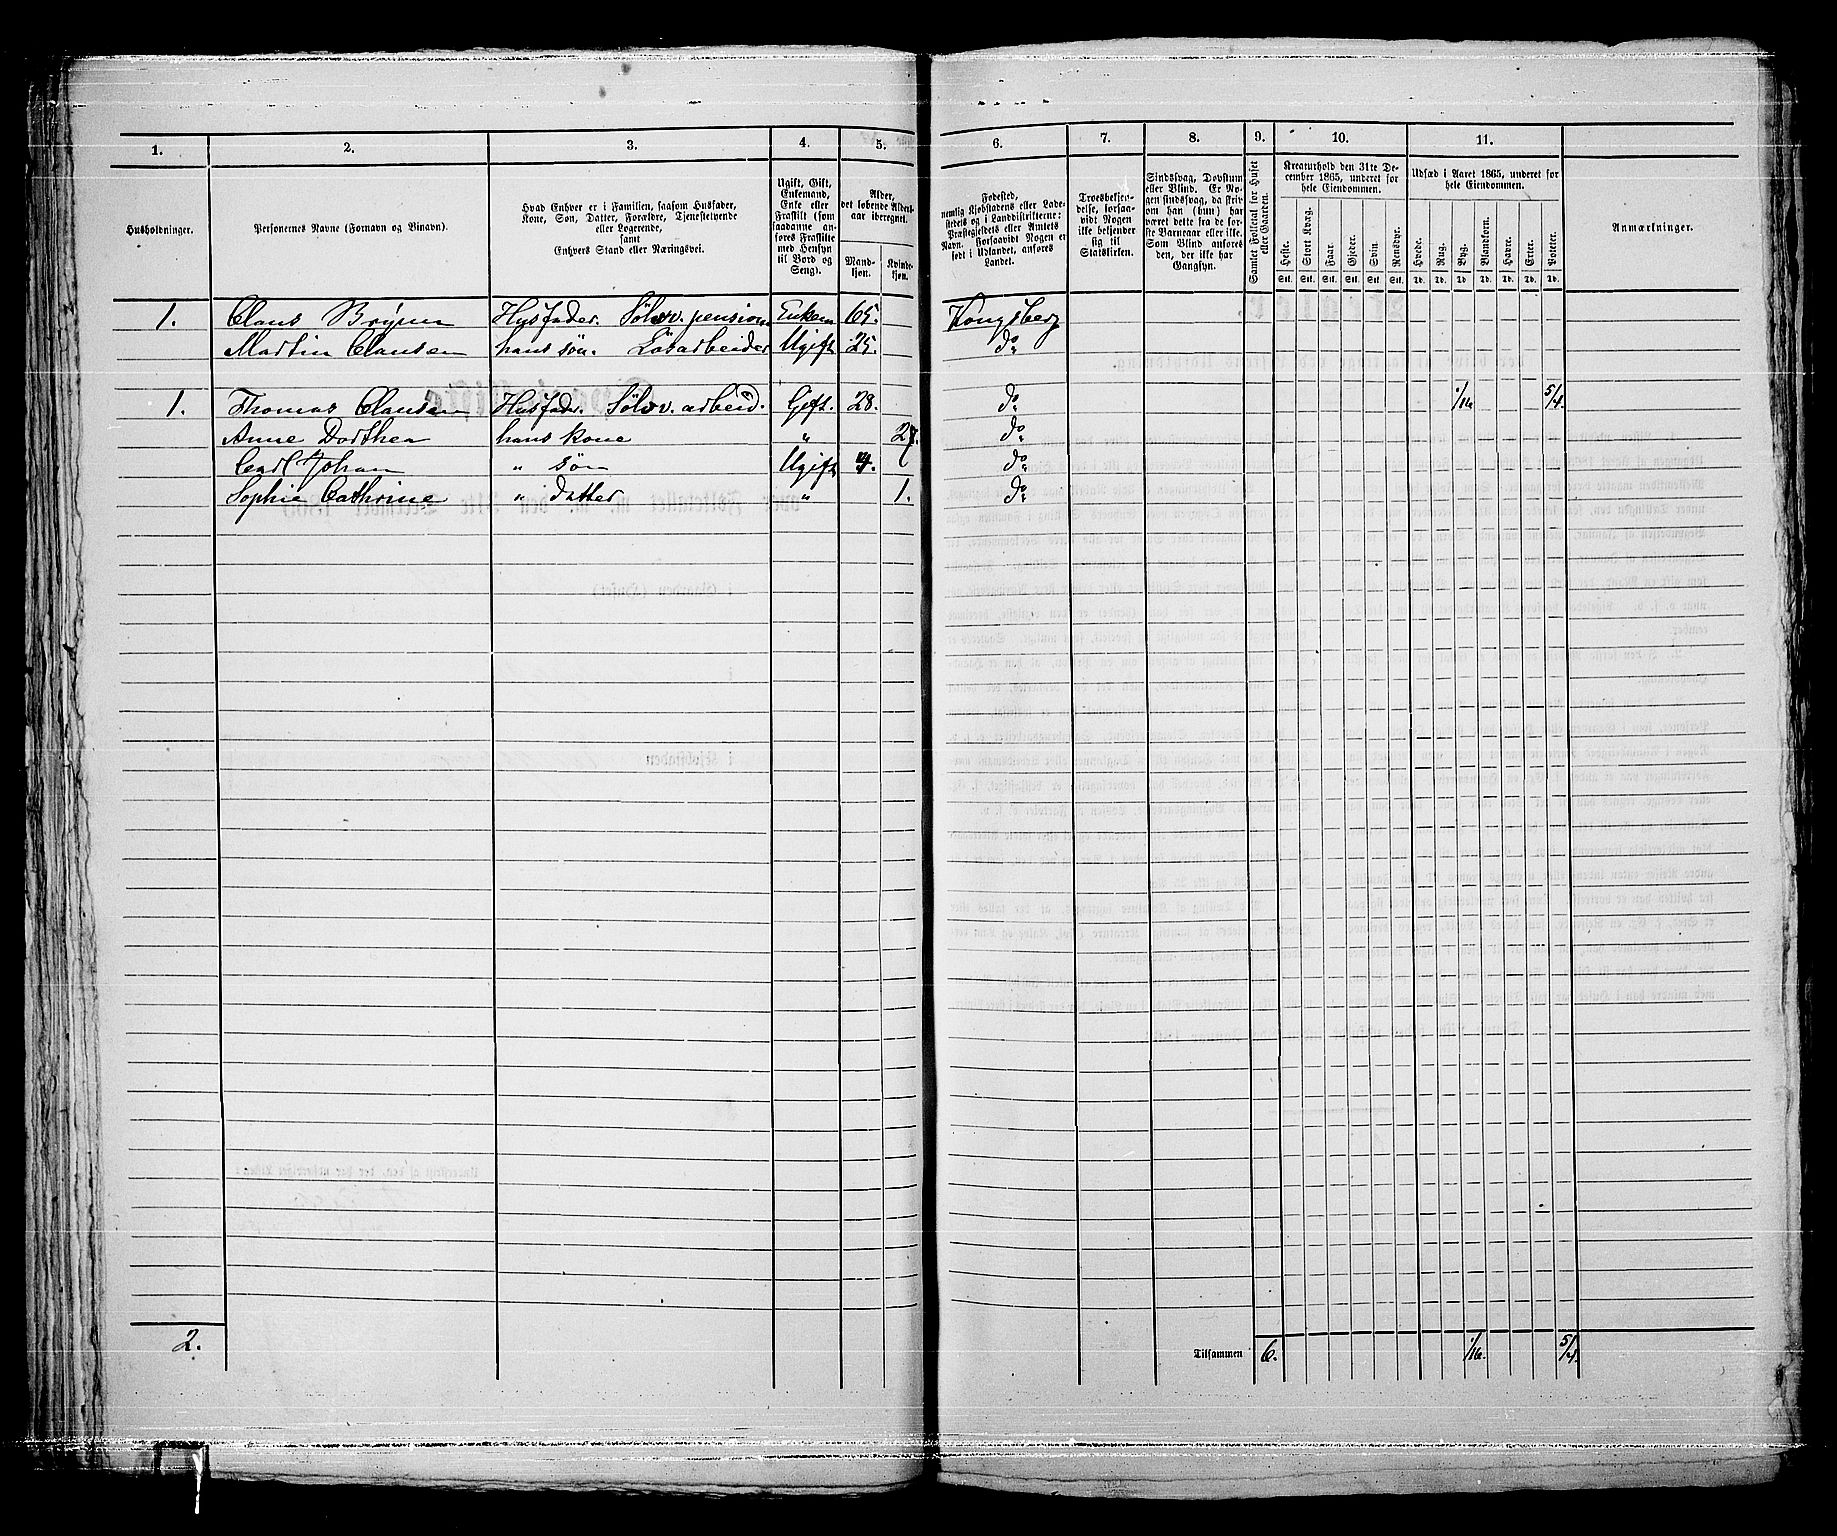 1. 2. 3. 4. 5. 6. 7. 8. 9. 10. 11.
Husholdninger.
Personernes Navne (Fornavn og Binavn).
Hvad Enhver er i Familien, saasom Husfader,
Kone, Søn, Datter, Forældre, Tjenestetyende
eller Logerende,
samt
Enhvers Stand eller Næringsvei.
Ugift, Gift,
Enkemand,
Enke eller
Fraskilt (som
saadanne an-
føres Fraskilte
med Hensyn
til Bord og
Seng).
Alder,
det løbende Alders-
aar iberegnet.
Mand-
kjøn.
Kvinde-
kjøn.
Fødested,
nemlig Kjøbstadens eller Lade-
stedets og i Landdistrikterne:
Præstegjeldets eller Amtets
Navn. Forsaavidt Nogen er
født i Udlandet, anføres
Landet.
Troesbekjen-
delse, forsaa-
vidt Nogen
ikke bekjender
sig til
Statskirken.
Sindssvag, Døvstum
eller Blind. Er No-
gen sindssvag, da skriv
om han (hun) har
været dette fra de før-
ste Barneaar eller ikke.
Som Blind anføres
den, der ikke har
Gangsyn.
Samlet Folketal for Huset
eller Gaarden.
Kreaturhold den 31te De-
cember 1865, underet for
hele Eiendommen.
Heste. Stort Kvæg. Faar. Gjeder. Svin. Rensdyr.
Stk. Stk. Stk. Stk. Stk. Stk.
Udsæd i Aaret 1865, underet for
hele Eiendommen.
Hvede. Rug. Byg. Blandkorn. Havre. Erter. Poteter.
Td. Td. Td. Td. Td. Td. Td.
Anmærkninger.
1. Claus Brynn Husfader. Sølvv. pension Enkem 65. Kongsberg
Martin Clausen hans søn. Løsarbeider Ugift 25. do
1. Thomas Clausen Husfader. Sølvv. arbeid. Gift. 28. do 1/16 5/4.
Anne Dorthea hans kone " do
Carl Johan " søn Ugift 4. do
Sophie Cathrine " datter " 1. do
2. Tilsammen 6. 1/16. 5/4.